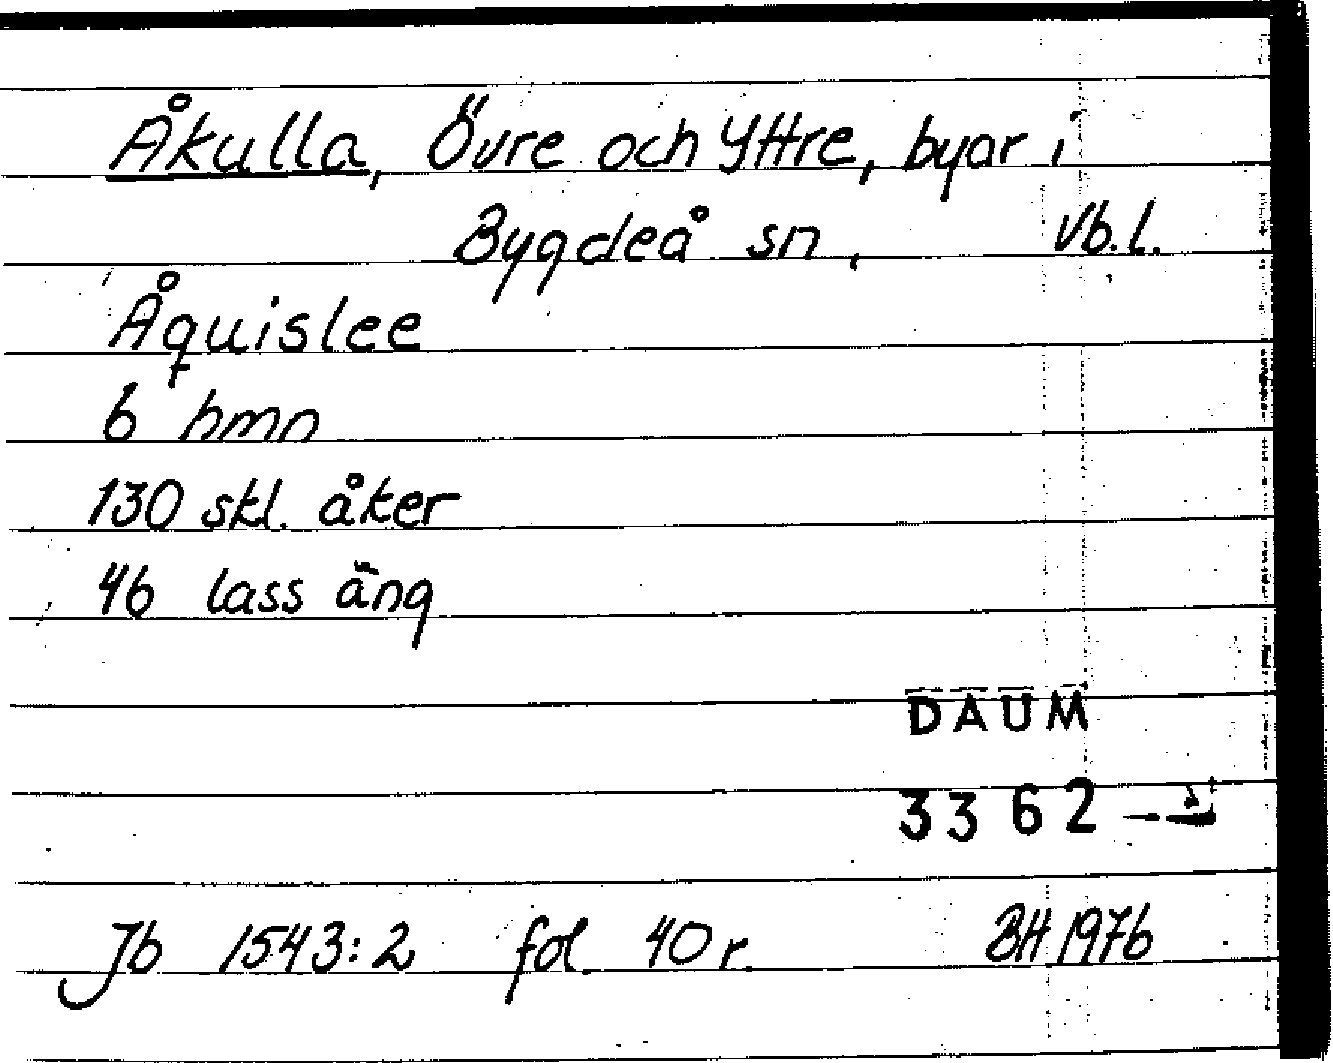 Åkulla, Övre och Yttre, byar i
Bygdeå sn, Vb.l.
Åquislee
6 hmn
130 skl. åker
46 lass äng
DAUM
3362
Jb 1543:2 fol 40 r. BH 1976